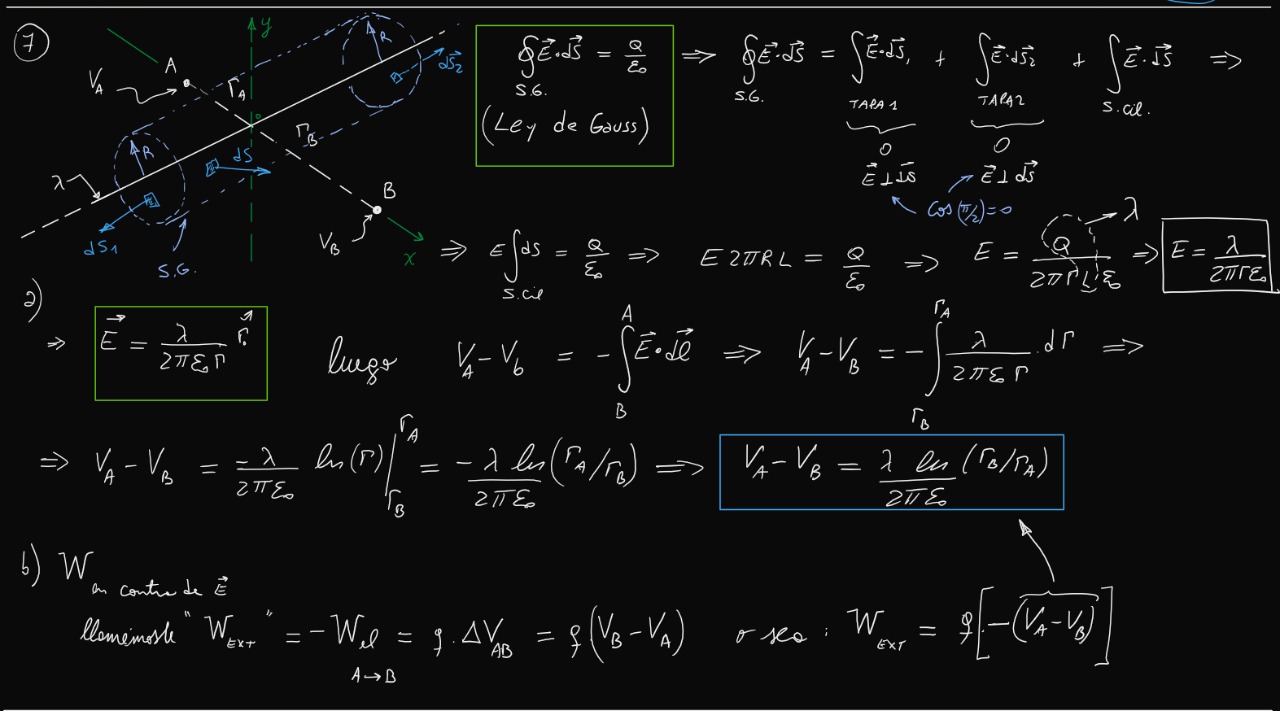 7
y
A
V_A
r_A
R
dS⃗_2
o
r_B
R
dS
λ
B
dS_1
S.G.
V_B
x
∮_{S.G.} E⃗·dS⃗ = Q/ε₀
(Ley de Gauss)
⇒ ∮_{S.G.} E⃗·dS⃗ = ∫_{TAPA 1} E⃗·dS⃗_1 + ∫_{TAPA 2} E⃗·dS⃗_2 + ∫_{S.cil.} E⃗·dS⃗ ⇒
0 0
E⃗ ⊥ dS⃗ E⃗ ⊥ dS⃗
cos(π/2)=0
⇒ E ∫_{S.cil} dS = Q/ε₀ ⇒ E 2πRL = Q/ε₀ ⇒ E = Q/(2πrLε₀) → λ ⇒ E = λ/(2πrε₀)
a)
⇒ E⃗ = λ/(2πε₀r) r⃗. luego V_A - V_b = -∫_B^A E⃗·dl⃗ ⇒ V_A - V_B = -∫_{r_B}^{r_A} λ/(2πε₀r) · dr ⇒
⇒ V_A - V_B = -λ/(2πε₀) ln(r)|_{r_B}^{r_A} = -λ ln(r_A/r_B)/(2πε₀) ⇒ V_A - V_B = λ ln(r_B/r_A)/(2πε₀)
b) W en contra de E⃗
llamémosle "W_EXT" = -W_el A→B = q.ΔV_AB = q(V_B - V_A) o sea : W_EXT = q[-(V_A - V_B)]